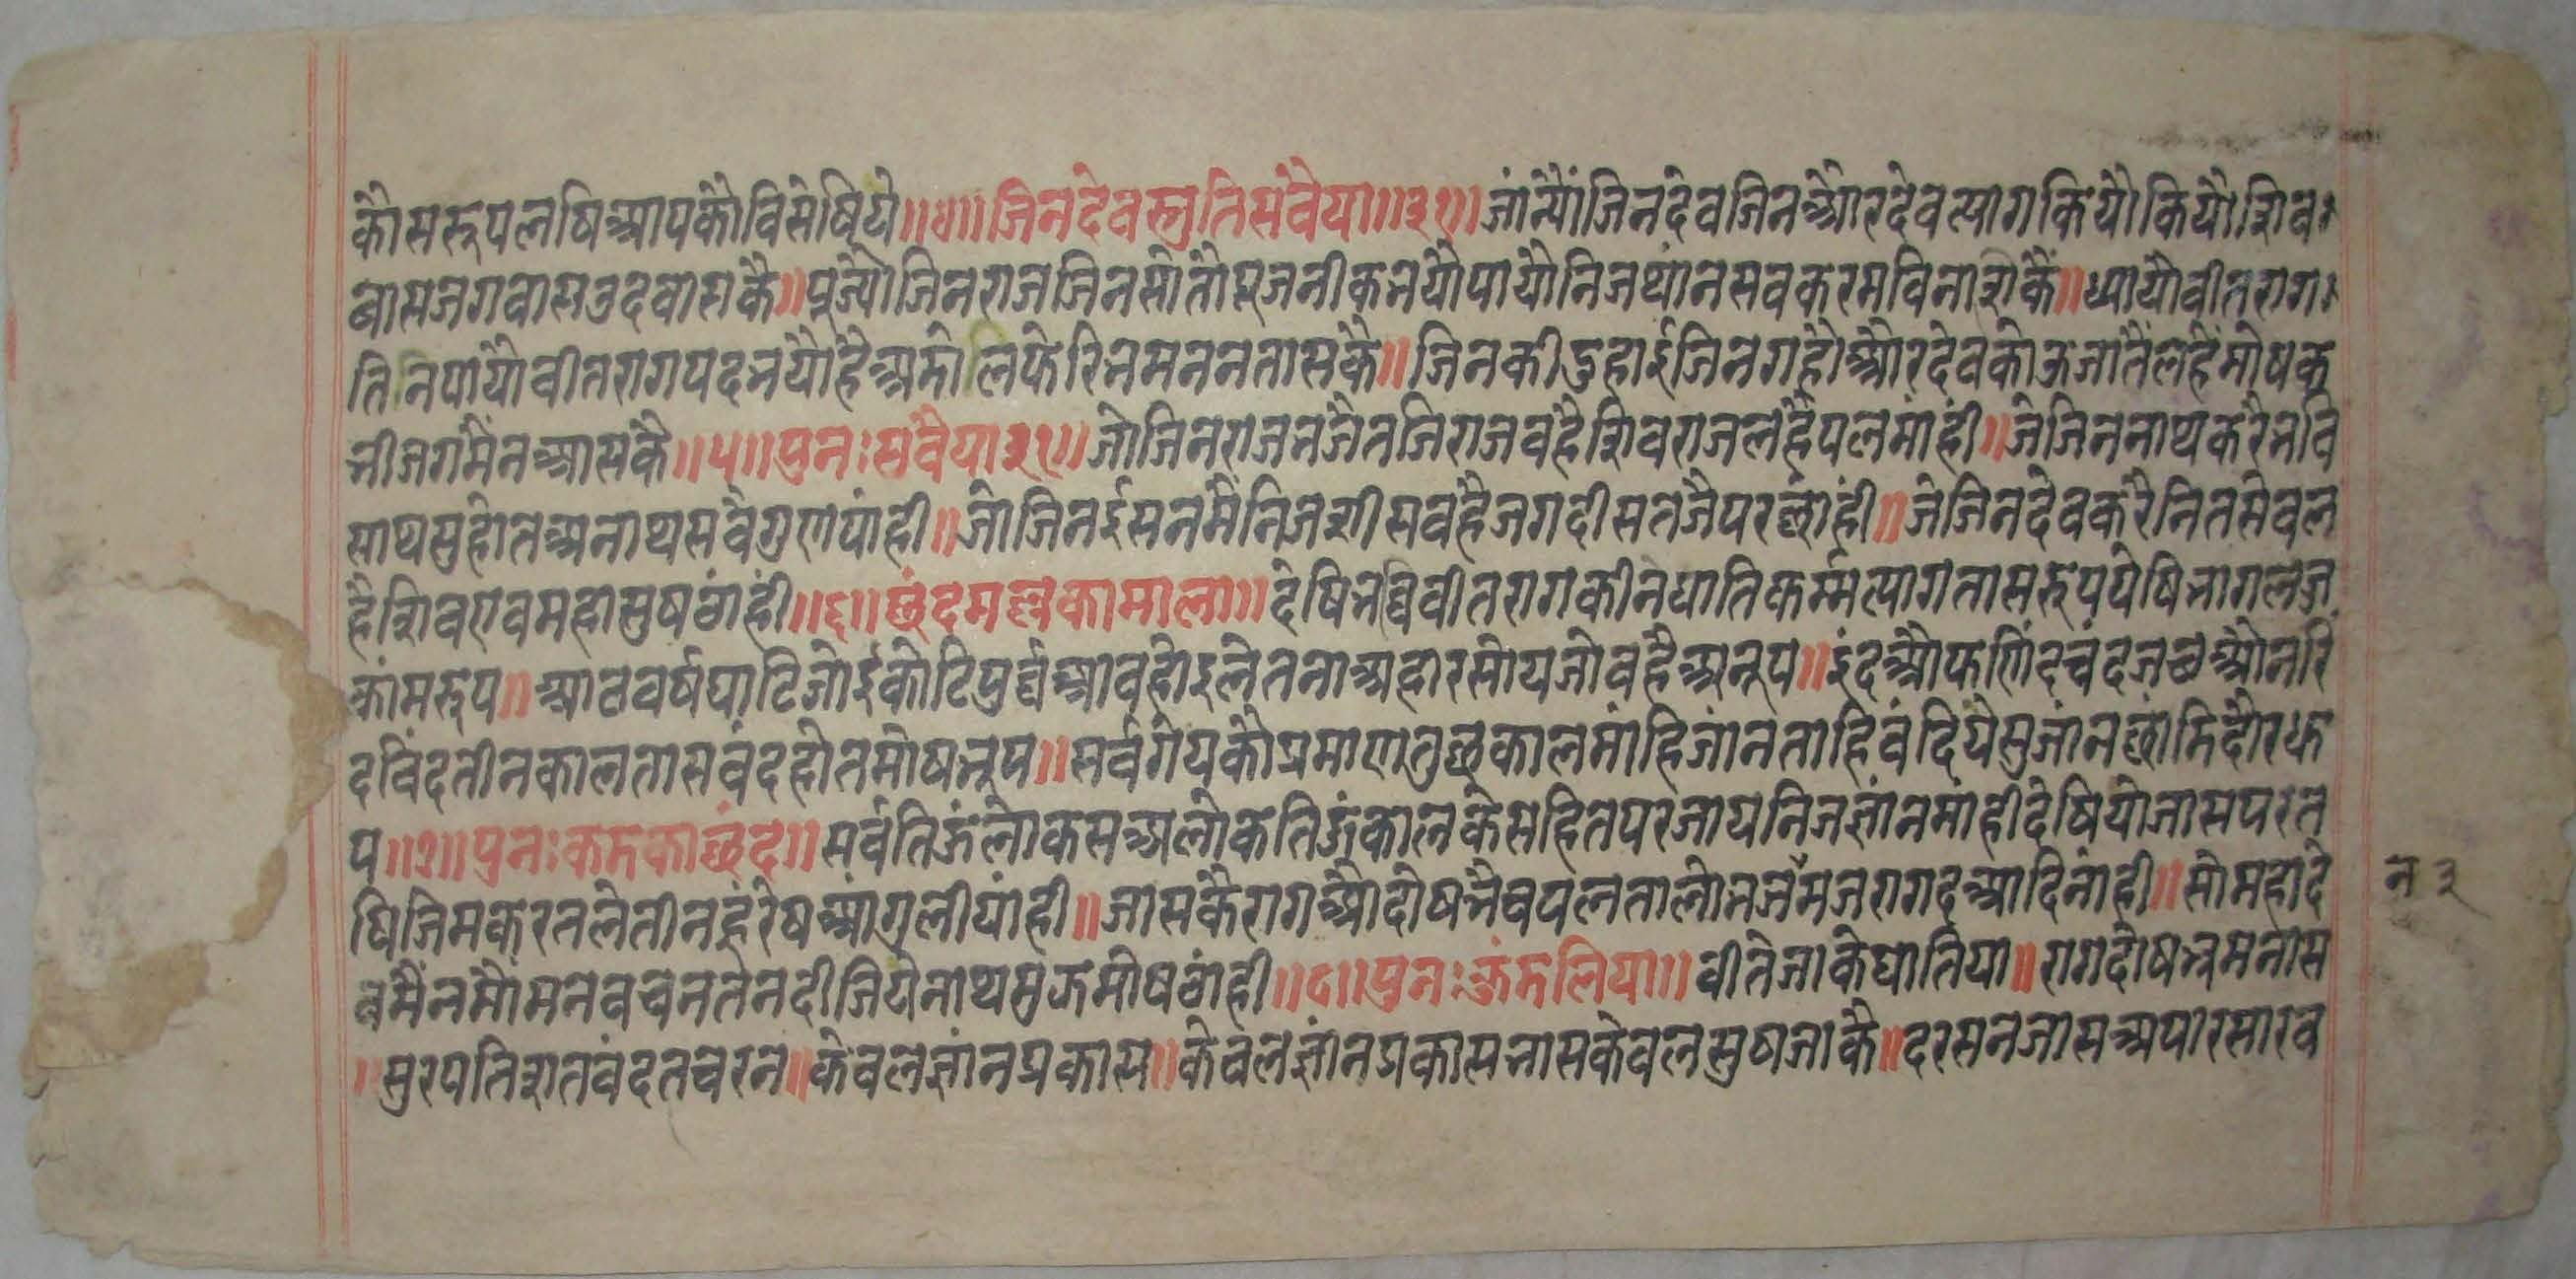 कौसरूपलषिआपकौविसेषिये॥४॥जिनदेवस्तुतिसंवैया॥३१॥जांन्यौंजिनदेवजिनऔरदेवत्यागकियौकियौशिव
बासजगवासउदवासकै॥पूज्यौजिनराजजिनसोंतौपूजनीकभयौपायौनिजथांनसवकरमविनाशकै॥ध्यायौवीतराग
तिनिपायौवीतरागपदभयौहैअमोलफेरिभ्रमननतासकै॥जिनकीदुहाईजिनगहौऔरदेवकोऊजातैंलहैंमोषक
भीजगमैंनआसकै॥५॥पुनःसवैया३१॥जोजिनराजभजैतजिराजवहैशिवराजलहैंपलमांही॥जेजिननाथकरैभवि
साथसुहोतअनाथसवैगुणपांही॥जोजिनईसनमैंनिजशीसवहैजगदीसतजैपरछांही॥जेजिनदेवकरैनितसेवल
हैशिवएवमहासुषठांही॥६॥छंदमल्लकामाला॥देषिभव्विवीतरागकीनघातिकर्म्मत्यागतासरूपपेषिभागलज
कांमरूप॥आठवर्षघाटिजोईकोटिपुर्व्वआवहोइलेतनाअहारसोयजोवहैअनूप॥इंदऔफणिंदचंदजछऔनरिं
दविंदतीनकालतासवंदहोतमोषभूप॥सर्वगेयकौप्रमाणतुछकालमांहिजांनताहिवंदियेसुजांनछांमिदौरधूफ
प॥७॥पुनःकमकाछंद॥सर्वतिऊंलोकसअलोकतिऊंकालकेसहितपरजायनिजज्ञांनमांहीदेषियोजासपरत
षिजिमकरतलेतीनहूंरेषआंगुलीयांही॥जासकैरागऔदोषभैचपलतालोभजमजरागदआदिनांही॥सोमहादे
वमैंनमौंमनवचनतनदीजियेनाथमुऊमोषठांही॥८॥पुनःकुंमलिया॥वीतेजाकेघातिया॥रागदोषभ्रमनास
॥सुरपतिशतवंदतचरन॥केवलज्ञांनप्रकास॥केवलज्ञांनप्रकासभासकेवलसुषजाकै॥दरसनजासअपारसारव
न३